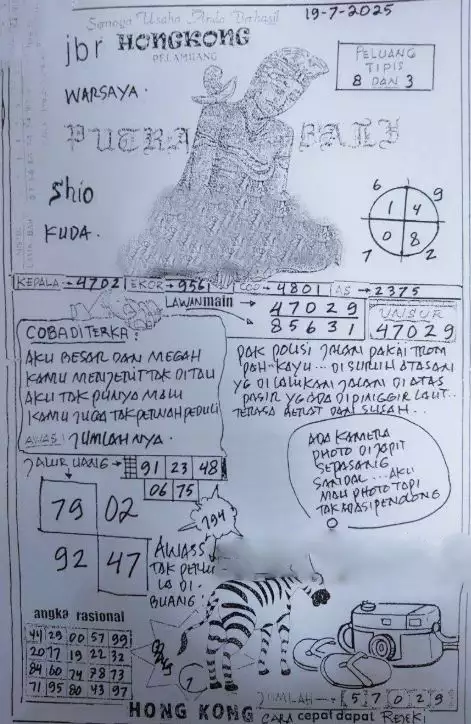 Semoga Usaha Anda Berhasil
19-7-2025
jbr HONGKONG
PELAMBANG
PELUANG
TIPIS
8 DAN 3
WARSAYA.
PUTRA BALI
Shio
KUDA.
6 9
1 4
0 8
7 2
KEPALA → 4702 EKOR → 9561 COP → 4801 AS → 2375
LAWAN main → 47029
→ 85631
UNSUR
47029
COBA DITERKA:
AKU BESAR DAN MEGAH
KAMU MENJERIT TAK DI TAU
AKU TAK PUNYA MALU
KAMU JUGA TAK PERNAH PEDULI
AWAS! JUMLAHNYA.
PAK POLISI JALAN PAKAI TROM
PAH KAYU... DI SURUH ATASAN
YG DI LALUKAN JALAN DI ATAS
PASIR YG ADA DI PINGGIR LAUT..
TERASA BERAT DAN SUSAH..
ADA KAMERA
PHOTO DI JAPIT
SEPASANG
SANDAL... AKU
MAU PHOTO TAPI
TAK ADA SI PENDONG
JALUR UANG → 91 23 48
06 75
79 02
92 47
794
AWASS
TAK PERLU
LA DI
BUANG
angka rasional
44 29 00 57 99
20 17 19 22 32
84 60 74 78 73
71 95 80 43 97
JUMLAH → 5 7 0 2 9
HONG KONG CARA cepat dapat REJEKI